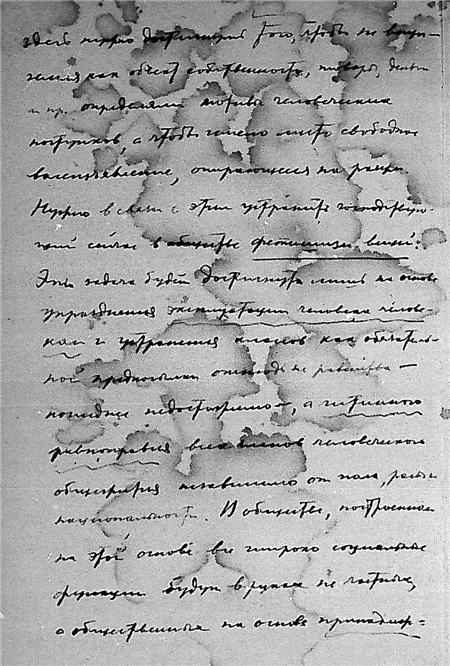 здесь нужно достигнуть того, чтобы не вещи-
земля как объект собственности, товары, деньги
и пр. определяли мотивы человеческих
поступков, а чтобы имело место свободное
волеизъявление, опирающееся на разум.
Нужно в связи с этим устранить господствую-
щий сейчас в обществе фетишизм вещей.
Эта задача будет достигнута лишь на основе
упразднения эксплуатации человека челове-
ком и устранения классов как обязатель-
ной предпосылки отнюдь не равенства —
вообще недостижимо —, а истинного
равноправия всех членов человеческого
общежития независимо от пола, расы
национальности. В обществе, построенном
на этой основе все широко социальные
функции будут в руках не частных,
а общественных на основе